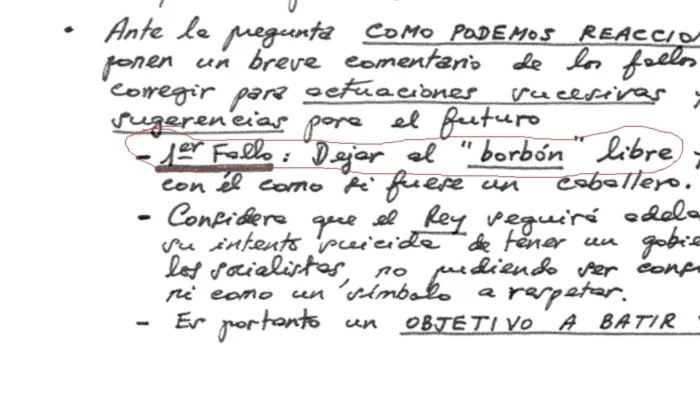 • Ante la pregunta COMO PODEMOS REACCIO
ponen un breve comentario de los fallos
corregir para actuaciones sucesivas y
sugerencias para el futuro
- 1er Fallo: Dejar al "borbón" libre y
con él como si fuese un caballero.
- Considera que el Rey seguirá adela
su intento suicida de tener un gobie
los socialistas, no pudiendo ser cons
ni como un símbolo a respetar.
- Es portanto un OBJETIVO A BATIR Y